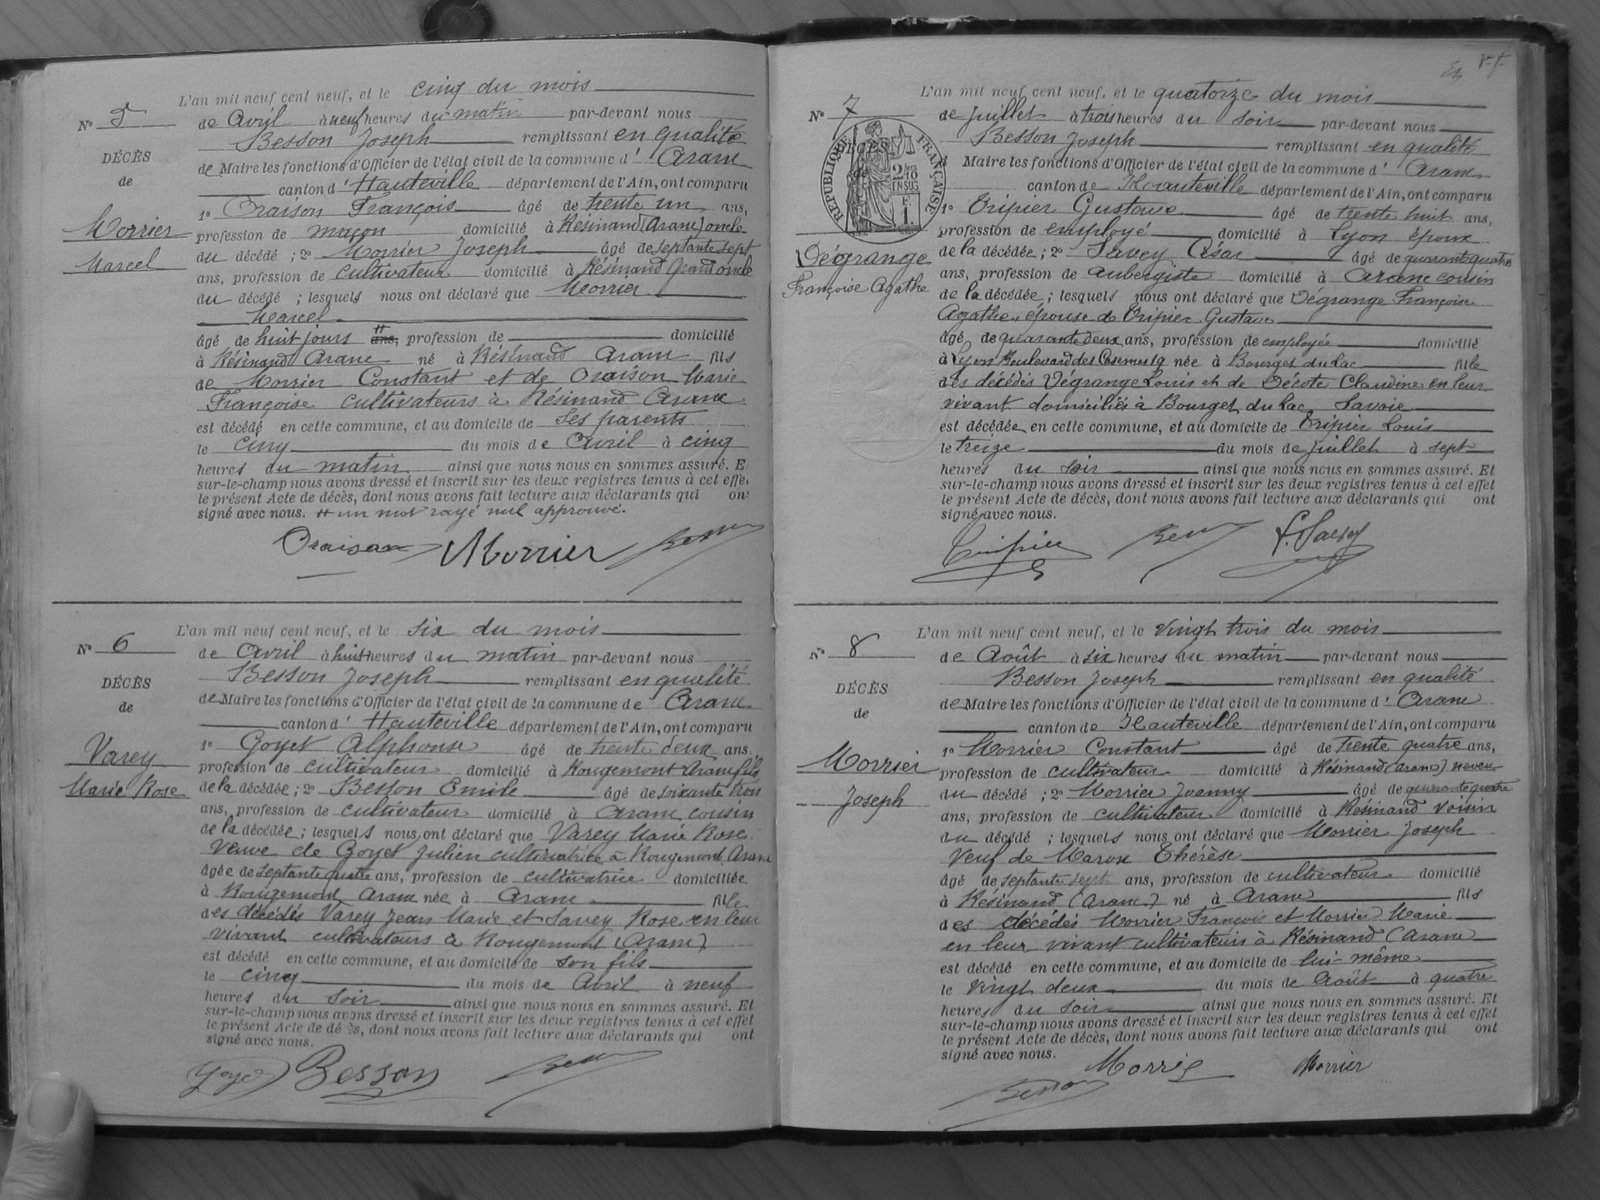 L'an mil neuf cent neuf, et le cinq du mois
N° 5 de Avril à neuf heures du matin par-devant nous
Besson Joseph remplissant en qualité
DÉCÈS de Maire les fonctions d'Officier de l'état civil de la commune d' Aranc
de canton d' Hauteville département de l'Ain, ont comparu
1° Oraison François âgé de trente un ans,
Morrier profession de maçon domicilié à Résinand (Aranc) oncle
Marcel du décédé ; 2° Morrier Joseph âgé de septante sept
ans, profession de cultivateur domicilié à Résinand Grand oncle
du décédé ; lesquels nous ont déclaré que Morrier
Marcel
âgé de huit jours ans, profession de domicilié
à Résinand Aranc né à Résinand Aranc fils
de Morrier Constant et de Oraison Marie
Françoise cultivateurs à Résinand Aranc
est décédé en cette commune, et au domicile de ses parents
le cinq du mois de Avril à cinq
heures du matin ainsi que nous nous en sommes assuré. E
sur-le-champ nous avons dressé et inscrit sur les deux registres tenus à cet effe
le présent Acte de décès, dont nous avons fait lecture aux déclarants qui on
signé avec nous. # un mot rayé nul approuvé.
Oraison Morrier Besson
L'an mil neuf cent neuf, et le six du mois
N° 6 de Avril à huit heures du matin par-devant nous
Besson Joseph remplissant en qualité
DÉCÈS de Maire les fonctions d'Officier de l'état civil de la commune de Aranc
de canton d' Hauteville département de l'Ain, ont comparu
1° Goyet Alphonse âgé de trente deux ans.
Varey profession de cultivateur domicilié à Rougemont Aranc fils
Marie Rose de la décédée ; 2° Besson Emile âgé de soixante trois
ans, profession de cultivateur domicilié à Aranc cousin
de la décédée ; lesquels nous ont déclaré que Varey Marie Rose
veuve de Goyet Julien cultivatrice à Rougemont Aranc
âgée de septante quatre ans, profession de cultivatrice domiciliée
à Rougemont Aranc née à Aranc fille
des décédés Varey Jean Marie et Savey Rose en leur
vivant cultivateurs à Rougemont (Aranc)
est décédé en cette commune, et au domicile de son fils
le cinq du mois de Avril à neuf
heures du soir ainsi que nous nous en sommes assuré. Et
sur-le-champ nous avons dressé et inscrit sur les deux registres tenus à cet effet
le présent Acte de décès, dont nous avons fait lecture aux déclarants qui ont
signé avec nous.
Goyet Besson Besson
L'an mil neuf cent neuf, et le quatorze du mois
N° 7 de Juillet à trois heures du soir par-devant nous
Besson Joseph remplissant en qualité
RÉPUBLIQUE FRANÇAISE
de Maire les fonctions d'Officier de l'état civil de la commune d' Aranc
canton de Hauteville département de l'Ain, ont comparu
1° Tripier Gustave âgé de trente huit ans,
profession de employé domicilié à Lyon époux
Dégrange de la décédée ; 2° Savey César âgé de quarante quatre
Françoise Agathe ans, profession de aubergiste domicilié à Aranc cousin
de la décédée ; lesquels nous ont déclaré que Dégrange Françoise
Agathe épouse de Tripier Gustave
âgé de quarante deux ans, profession de employée domicilié
à Lyon Boulevard des née à Bourget du Lac fille
des décédés Dégrange Louis et de Décote Claudine en leur
vivant domiciliés à Bourget du Lac Savoie
est décédée en cette commune, et au domicile de Tripier Louis
le treize du mois de juillet à sept
heures du soir ainsi que nous nous en sommes assuré. Et
sur-le-champ nous avons dressé et inscrit sur les deux registres tenus à cet effet
le présent Acte de décès, dont nous avons fait lecture aux déclarants qui ont
signé avec nous.
Tripier Besson Savey
L'an mil neuf cent neuf, et le vingt trois du mois
N° 8 de Août à six heures du matin par-devant nous
Besson Joseph remplissant en qualité
DÉCÈS de Maire les fonctions d'Officier de l'état civil de la commune d' Aranc
de canton de Hauteville département de l'Ain, ont comparu
1° Morrier Constant âgé de trente quatre ans,
Morrier profession de cultivateur domicilié à Résinand (Aranc) neveu
Joseph du décédé ; 2° Morrier Joanny âgé de quarante quatre
ans, profession de cultivateur domicilié à Résinand voisin
du décédé ; lesquels nous ont déclaré que Morrier Joseph
veuf de Maron Thérèse
âgé de septante sept ans, profession de cultivateur domicilié
à Résinand (Aranc) né à Aranc fils
des décédés Morrier François et Morrier Marie
en leur vivant cultivateurs à Résinand (Aranc
est décédé en cette commune, et au domicile de lui-même
le vingt deux du mois de Août à quatre
heures du soir ainsi que nous nous en sommes assuré. Et
sur-le-champ nous avons dressé et inscrit sur les deux registres tenus à cet effet
le présent Acte de décès, dont nous avons fait lecture aux déclarants qui ont
signé avec nous.
Besson Morrier Morrier